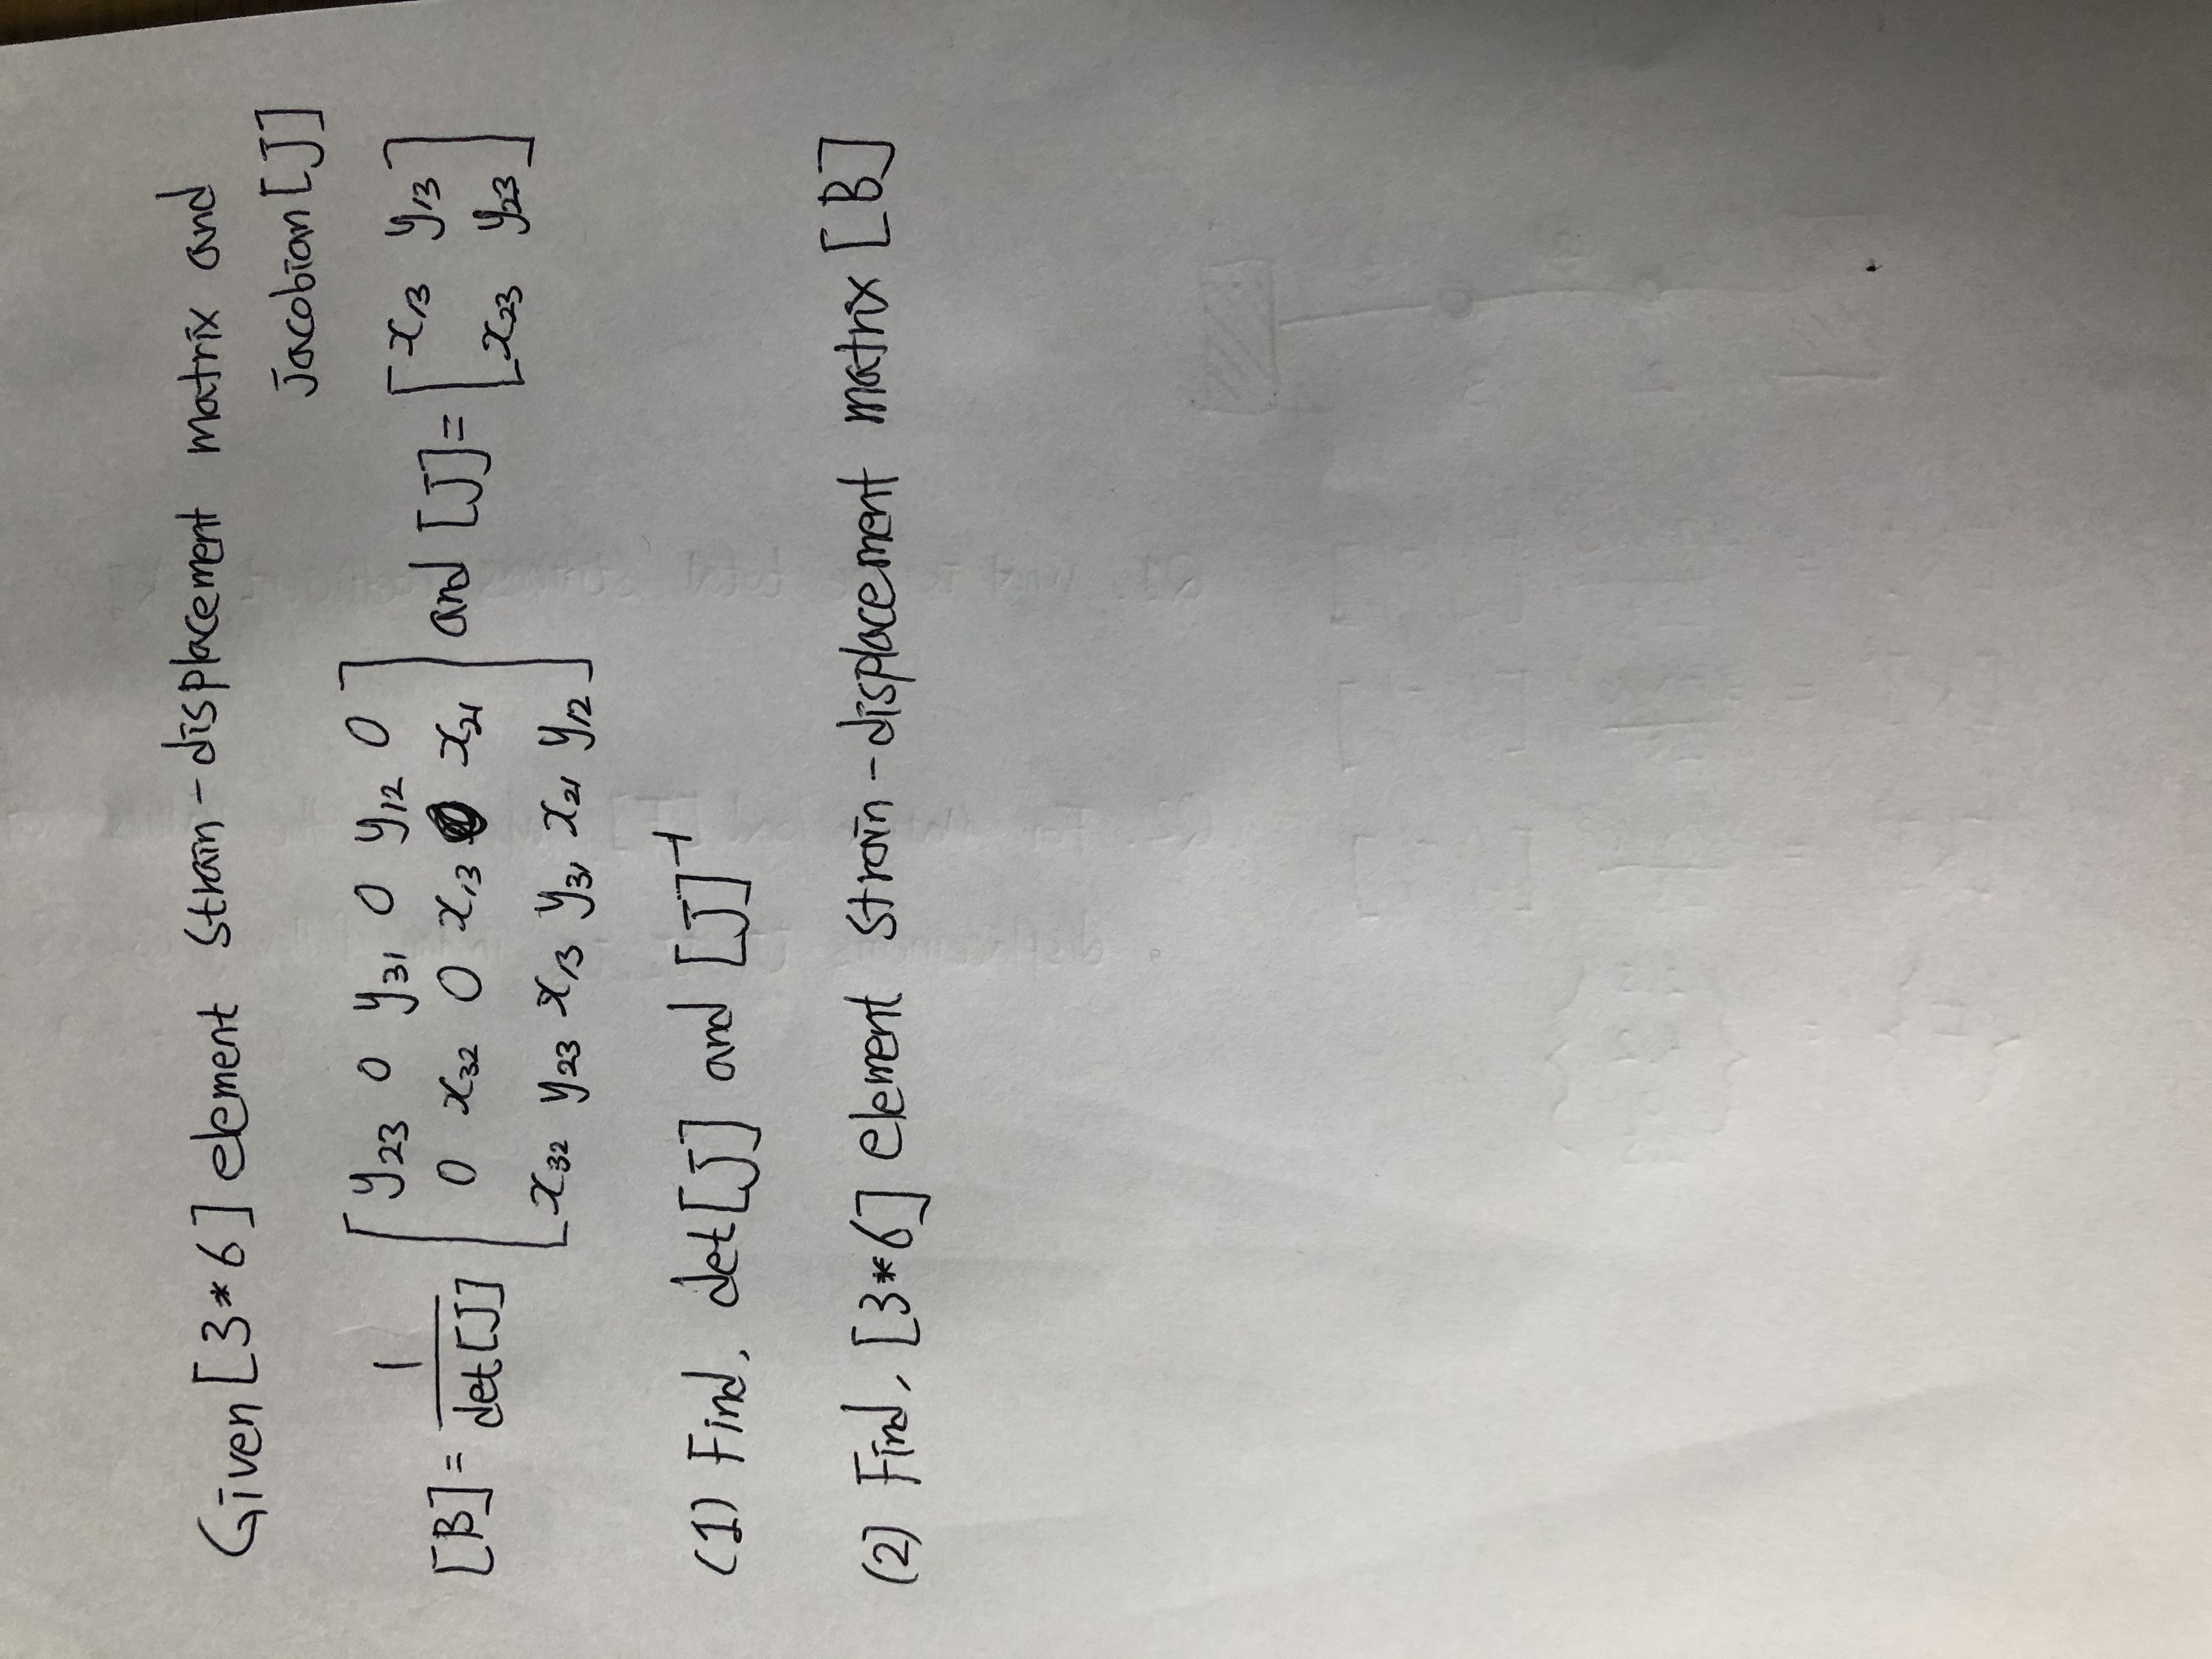 Given [3*6] element strain-displacement matrix and
Jacobian [J]
[B] = 1/det[J] [y23 0 y31 0 y12 0
0 x32 0 x13 0 x21
x32 y23 x13 y31 x21 y12] and [J] = [x13 y13
x23 y23]
(1) Find, det[J] and [J]-1
(2) Find, [3*6] element strain-displacement matrix [B]